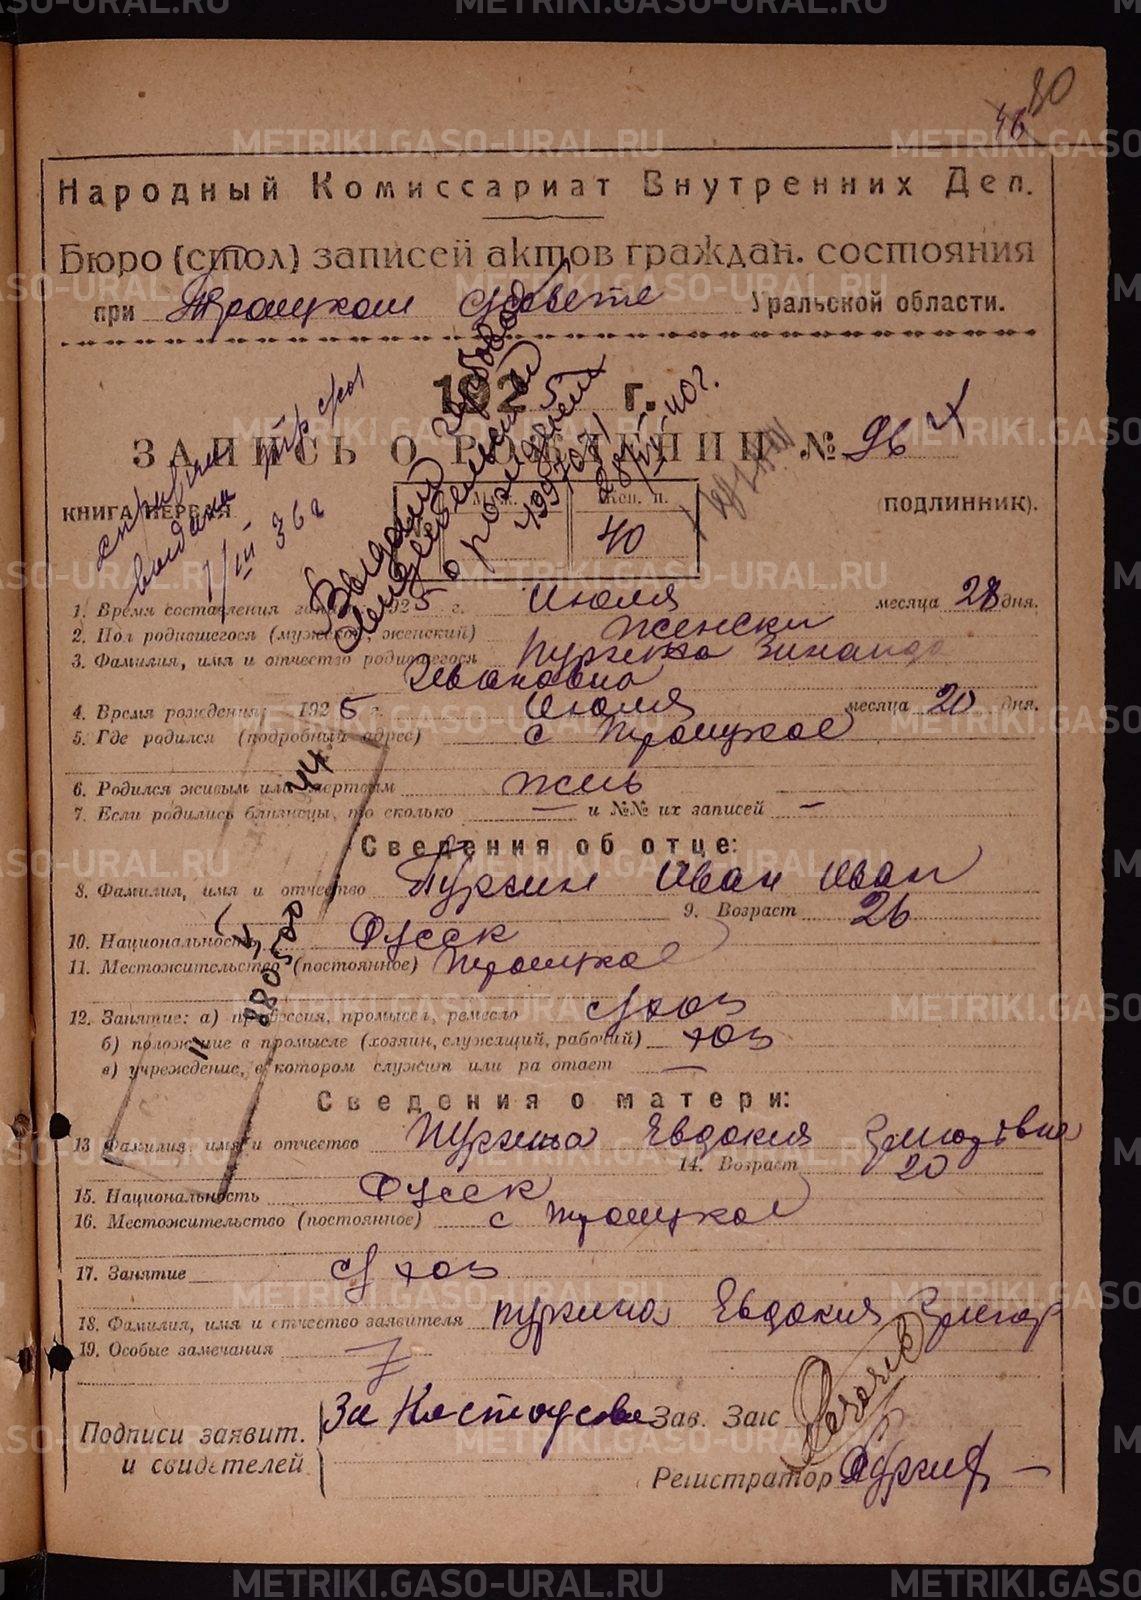 80
46
Народный Комиссариат Внутренних Дел.
Бюро (стол) записей актов граждан. состояния
при Троицком Совете Уральской области.
1925 г.
ЗАПИСЬ О РОЖДЕНИИ № 96
КНИГА ПЕРВАЯ (ПОДЛИННИК).
Муж. п. Жен. п.
40
справка
выдана
7/III 36 г
Выдано
о рождении
28/IV-40 г.
1. Время составления записи 1925 г. Июля месяца 28 дня.
2. Пол родившегося (мужской, женский) Женски
3. Фамилия, имя и отчество родившегося Пургина Зинаида
Ивановна
4. Время рождения 1925 г. Июля месяца 20 дня.
5. Где родился (подробный адрес) с Троицкое
6. Родился живым или мертвым жив
7. Если родились близнецы, то сколько — и №№ их записей —
Сведения об отце:
8. Фамилия, имя и отчество Пургин Иван Иван
9. Возраст 26
10. Национальность Русск
11. Местожительство (постоянное) Троицкое
12. Занятие: а) профессия, промысел, ремесло с/хоз
б) положение в промысле (хозяин, служащий, рабочий) хоз
в) учреждение, в котором служит или работает —
Сведения о матери:
13. Фамилия, имя и отчество Пургина Евдокия
14. Возраст 20
15. Национальность Русск
16. Местожительство (постоянное) с Троицкое
17. Занятие с/хоз
18. Фамилия, имя и отчество заявителя Пургина Евдокия
19. Особые замечания
Подписи заявит. и свидетелей За Зав. Загс
Регистратор
METRIKI.GASO-URAL.RU